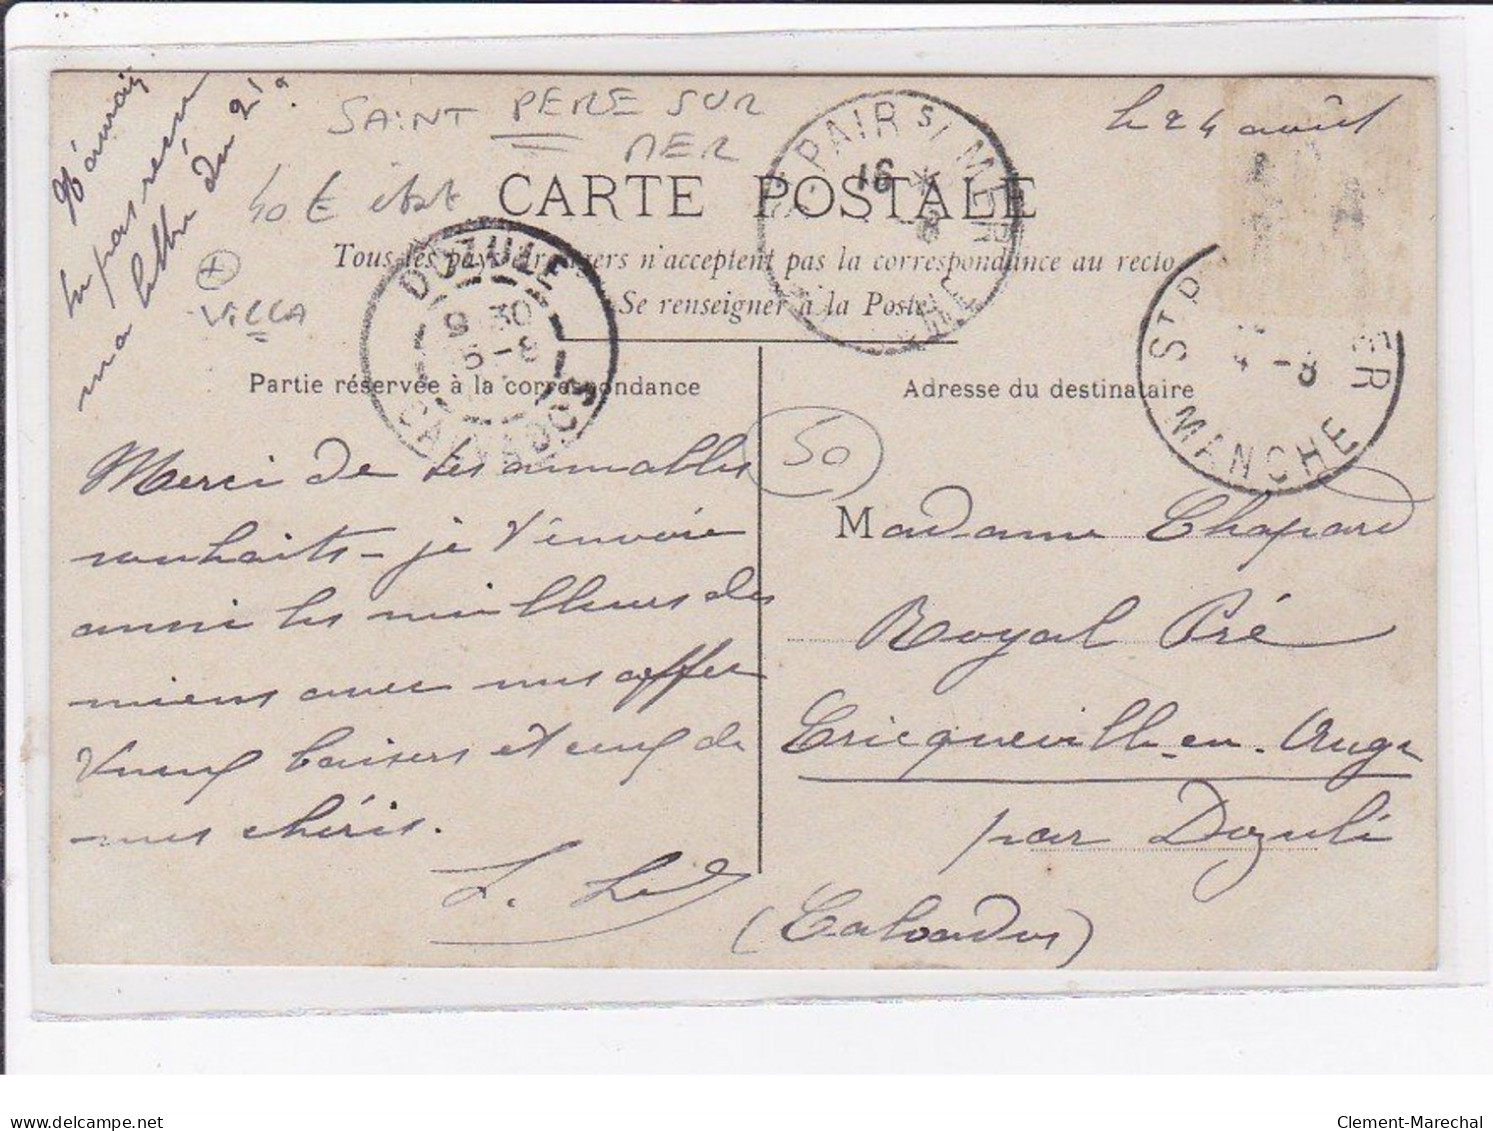 N'aurais
tu pas reçu
ma lettre du 21?
SAINT PERE SUR
MER
40 € état
+
VILLA
Le 24 août
CARTE POSTALE
Tous les pays étrangers n'acceptent pas la correspondance au recto
Se renseigner à la Poste
ST PAIR S/ MER
16 *
8
DOZULE
9 30
5 -8
CALVADOS
ST P ER
4 -8
MANCHE
Partie réservée à la correspondance
Adresse du destinataire
50
Merci de tes aimables
souhaits - je t'envoie
aussi les meilleurs des
miens avec mes affec
tueux baisers et ceux de
mes chéris.
Madame Chapard
Royal Pré
Cricqueville-en-Auge
par Dozulé
(Calvados)
Clement-Marechal